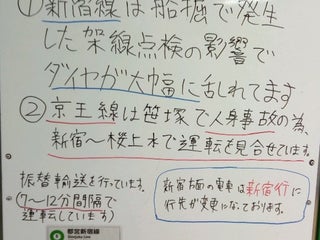 ①新宿線は船堀で発生
した架線点検の影響で
ダイヤが大幅に乱れてます
②京王線は笹塚で人身事故の為、
新宿～桜上水で運転を見合せています。
振替輸送を行っています。
(7～12分間隔で
運転しています)
新宿方面の電車は新宿行に
行先が変更になっております。
都営新宿線
Shinjuku Line